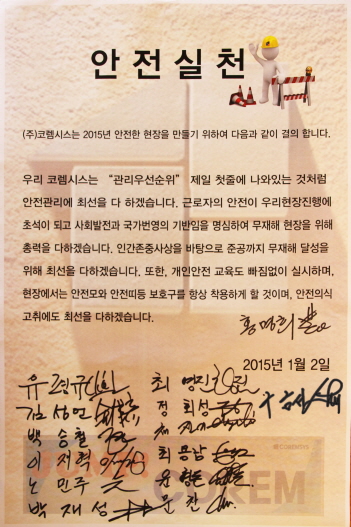 안전실천
(주)코렘시스는 2015년 안전한 현장을 만들기 위하여 다음과 같이 결의 합니다.
우리 코렘시스는 “관리우선순위” 제일 첫줄에 나와있는 것처럼
안전관리에 최선을 다 하겠습니다. 근로자의 안전이 우리현장진행에
초석이 되고 사회발전과 국가번영의 기반임을 명심하여 무재해 현장을 위해
총력을 다하겠습니다. 인간존중사상을 바탕으로 준공까지 무재해 달성을
위해 최선을 다하겠습니다. 또한, 개인안전 교육도 빠짐없이 실시하며,
현장에서는 안전모와 안전띠등 보호구를 항상 착용하게 할 것이며, 안전의식
고취에도 최선을 다하겠습니다.
2015년 1월 2일
유 최 명진
김 성민 정 회성
백 승철
이 최 용남
노 민주 윤
박 재성
COREM